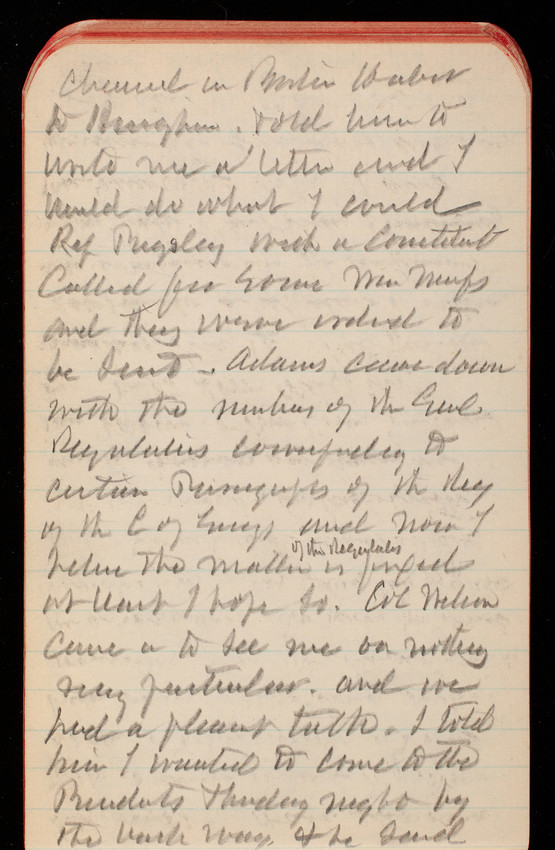 Channel in Boston Harbor
to Bingham. told him to
write me a letter and I
would do what I could
Rep Pugsley with a Constituent
Called for some War Maps
and they were ordered to
be sent. Adams came down
with the numbers of the Genl
Regulations corresponding to
certain Paragraphs of the Reg
of the C of Engrs and now I
believe the matter of the Regulations is fixed
at least I hope so. Col Wilson
came in to see me on nothing
very particular. and we
had a pleasant talk. I told
him I wanted to come to the
Presidents Thursday night by
the back way & he said